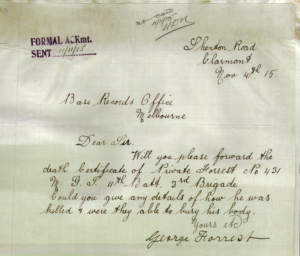 FORMAL ACKmt.
SENT 11/11/15
Sherdon Road
Claremont
Nov 4th 15.
Base Records Office
Melbourne
Dear Sir.
Will you please forward the
death Certificate of Private Forrest No 431
M. G. S. 11th Batt. 3rd Brigade
Could you give any details of how he was
killed & were they able to bury his body.
Yours etc
George Forrest